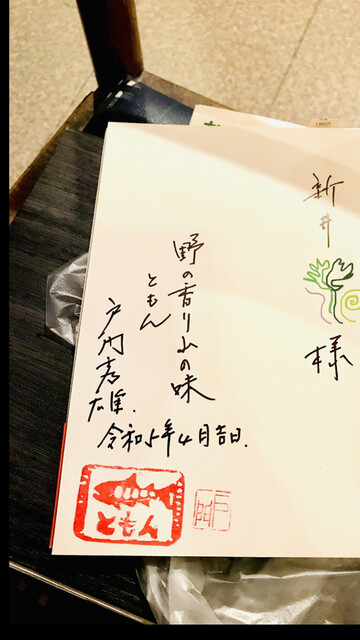 新井様
野の香り山の味
ともん
戸門秀雄.
令和5年4月吉日.
ともん
戸門